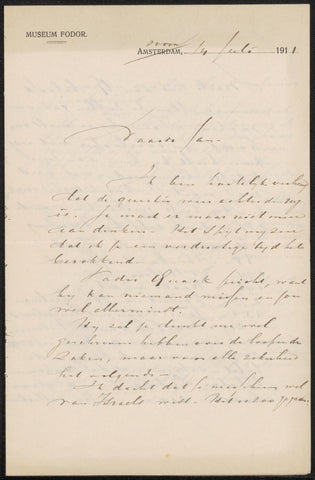 MUSEUM FODOR.
AMSTERDAM, 14 Juli 1911
Waarde Jan.
Ik ben hartelijk verheugd
dat de quaestie weer achter den rug
is. Je moet er maar niet meer
aan denken. Het spijt mij zeer
dat ik je een verdrietige tijd heb
berokkend.
Vader Quack
hij kan niemand missen en jou
wel allerminst.
Hij zal je denkt me wel
geschreven hebben over de loopende
zaken, maar voor alle zekerheid
het volgende.
Ik dacht dat je misschien wel
van Israels